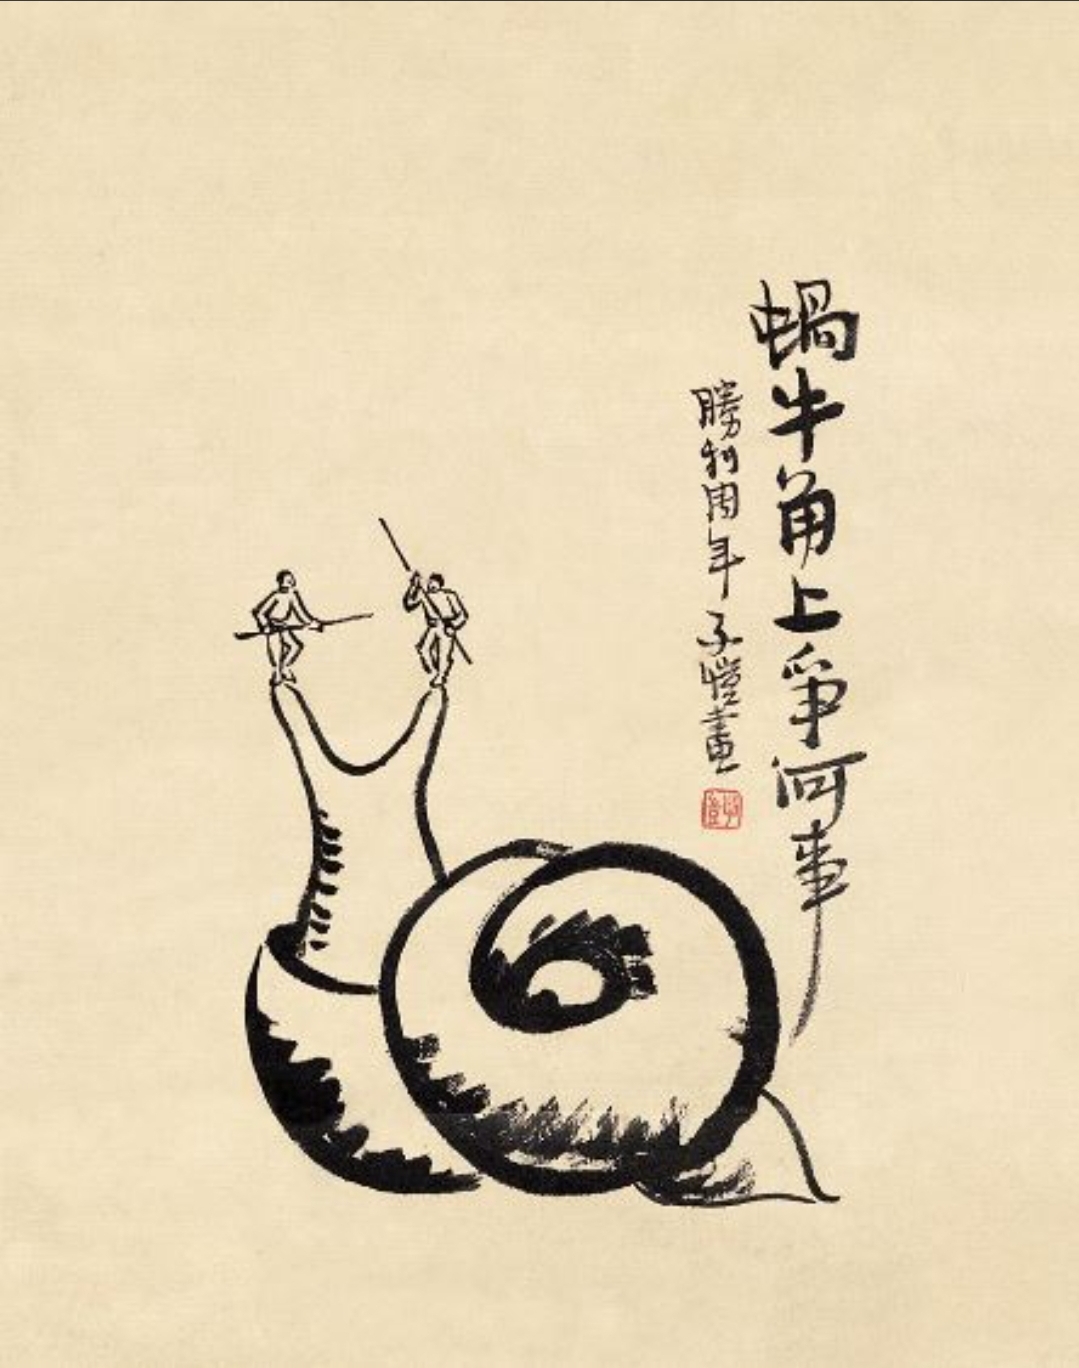 蝸牛角上爭何事
勝利周年子愷畫